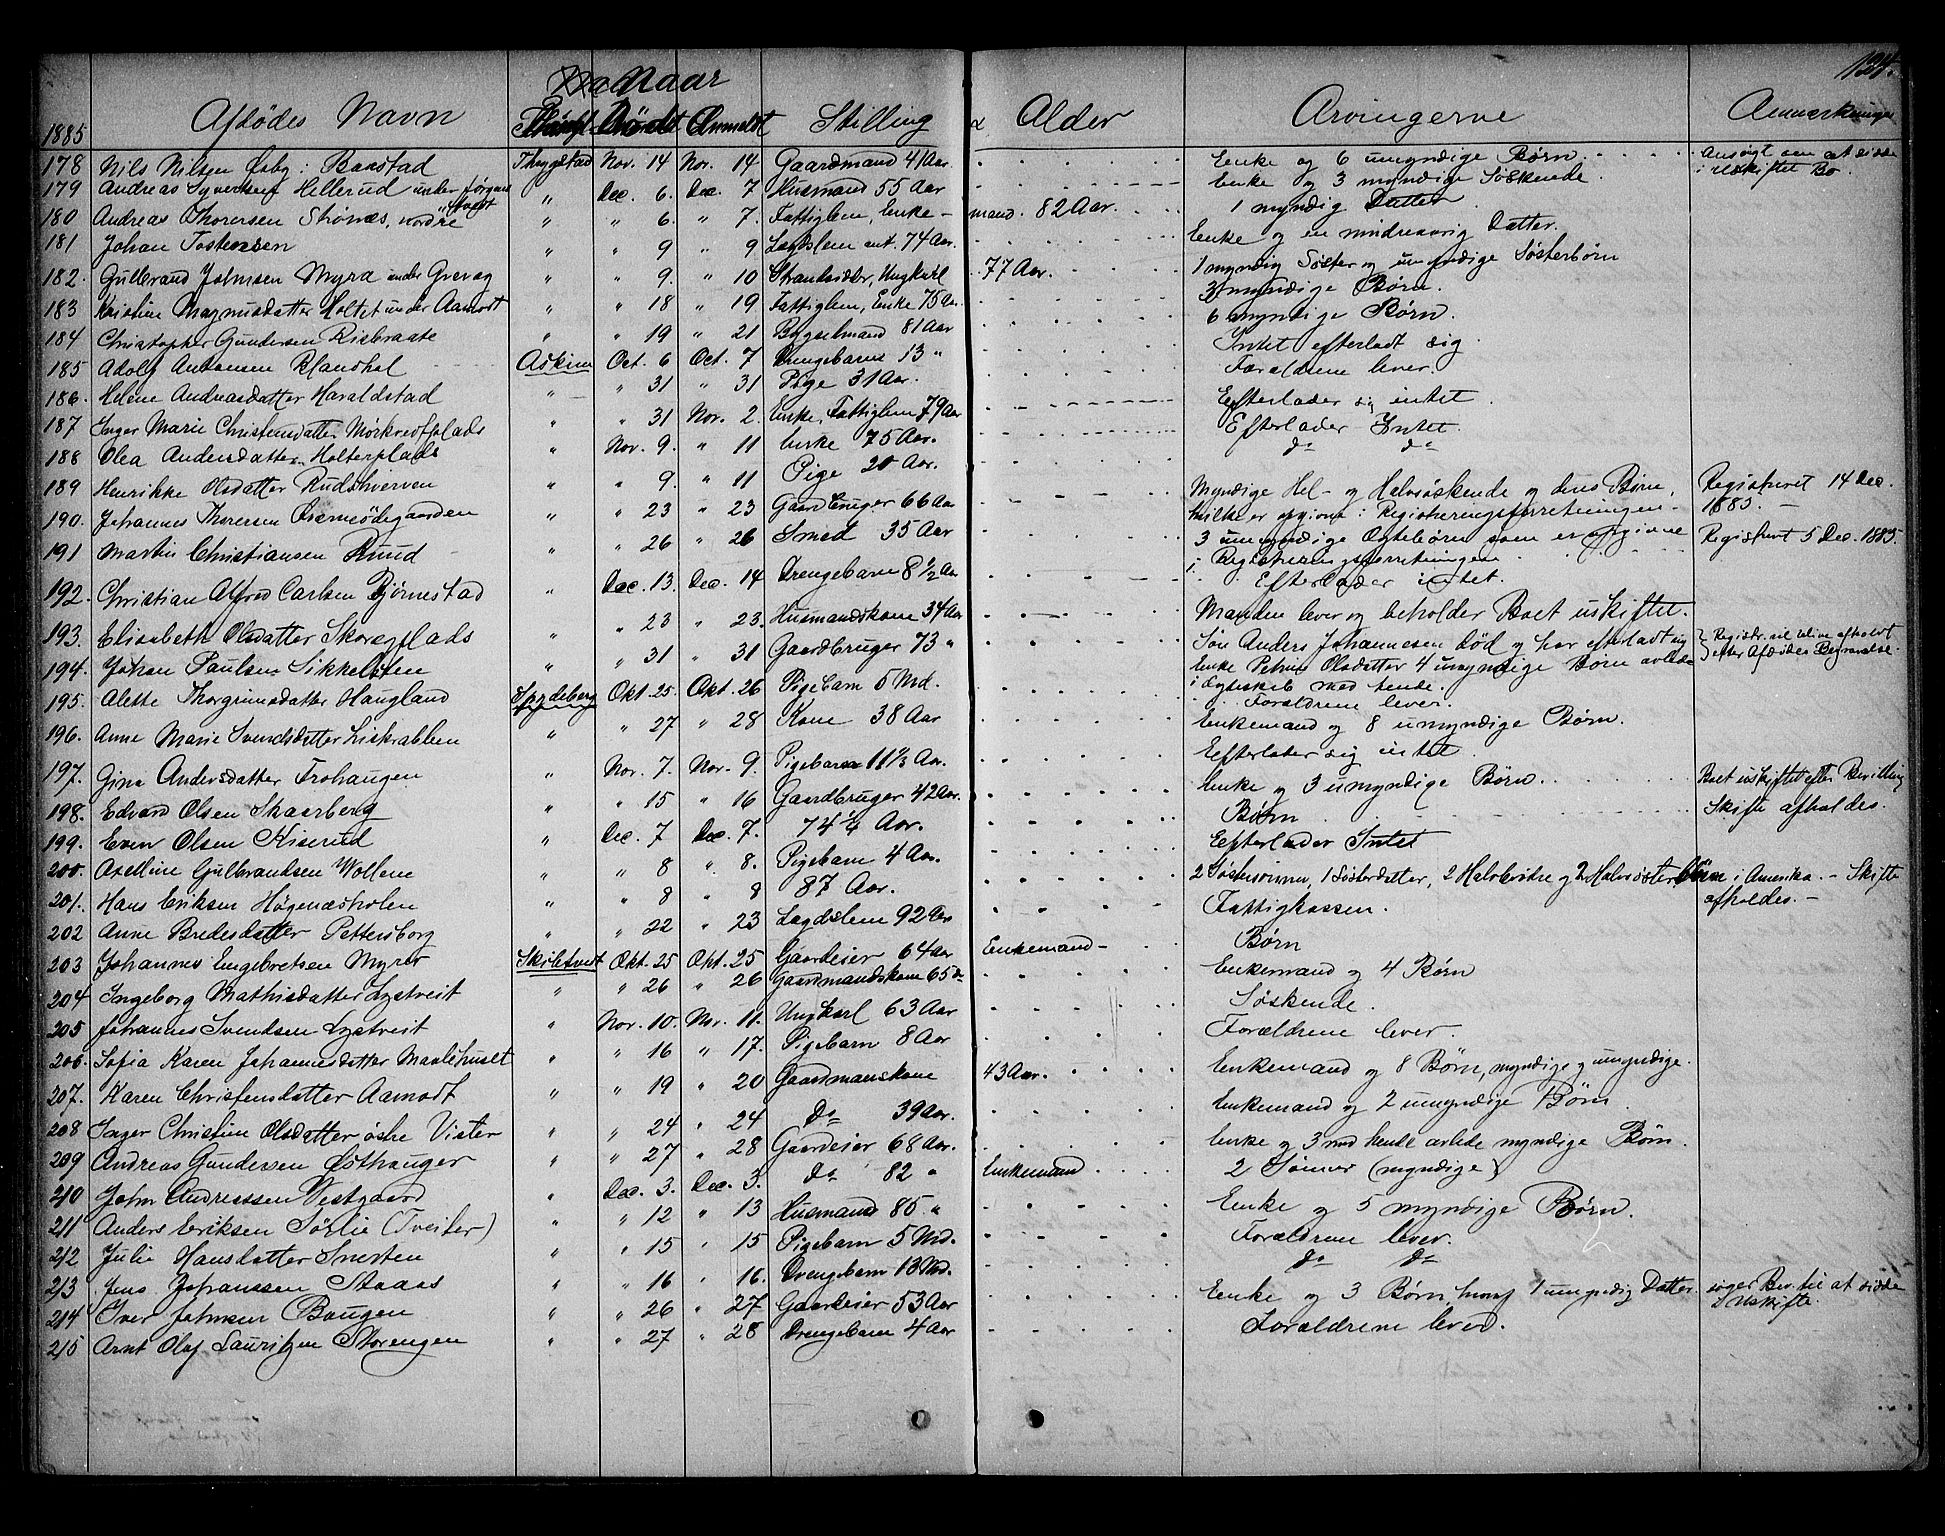 124.
Naar
1885 Afdødes Navn Anmeldt Stilling & Alder Arvingerne Anmærkninger
178 Nils Nilsen Øsby i Baastad Thrygstad Nov. 14 Nov. 14 Gaardmand 41 Aar. Enke og 6 umyndige Børn. Ansøgt om at sidde
i uskiftet Bo.
179 Andreas Syvertsen Hellerud under " Dec. 6. Dec. 7 Husmand 55 Aar Enke og 3 myndige Søskende.
180 Andreas Thoresen Strønæs, nordre " " 6. " 7. Fattiglem, Enke- mand. 82 Aar. 1 myndig Datter
181 Johan Tostensen " " 9 " 9 Lægdslem 74 Aar. Enke og en mindreaarig Datter.
182. Gulbrand Johnsen Myra under Grevag " " 9. " 10 Ungkarl 77 Aar. 1 myndig Søster og umyndige Søsterbørn
183 Kristine Magnusdatter Holtet under Aamodt " " 18 " 19 Fattiglem, Enke 75 Aar 3 myndige Børn.
184 Christopher Gundersen Risbraate " " 19 " 21 Bygselmand 81 Aar 6 myndige Børn.
185 Adolf Antonsen Askim Oct. 6 Oct. 7 Drengebarn 13 " Intet efterladt sig
186. Helene Andreasdatter Haraldstad " " 31 " 31 Pige 31 Aar. Forældrene lever.
187 Inger Marie Christensdatter Mørkvedplads " " 31 Nov. 2. Enke, Fattiglem 79 Aar Efterlader sig intet.
188 Olea Andersdatter Holterplads " Nov. 9. " 11 Enke 75 Aar. Efterlader Intet.
189 Henrikke Olsdatter Rudshverven " " 9. " 11 Pige 20 Aar. do do
190. Johannes Thoresen " " 23 " 23 Gaardbruger 66 Aar Myndige Hel- og Halvsøskende og deres Børn, Registreret 14 Dec.
hvilke er opgivne i Registreringsforretningen- 1885. -
191 Martin Christiansen Ruud " " 26 " 26 Smed 35 Aar 3 umyndige Ægtebørn som er opgivne Registreret 5 Dec. 1885.
i Registreringsforretningen
192. Christian Alfred Carlsen Bjørnestad " Dec. 13. Dec. 14 Drengebarn 8 1/2 Aar Efterlader intet.
193. Elisabeth Olsdatter Skoregplads " " 23 " 23. Husmandskone 34 Aar Manden lever og beholder Boet uskiftet.
194. Johan Paulsen Sikkelsten " " 31 " 31 Gaardbruger 73 " Søn Anders Johannesen død og har efterladt sig Registr. vil blive afholdt
Enke Petrine Olsdatter 4 umyndige Børn avlede efter Afdødes Begravelse.
i Ægteskab med hende.
195. Alette Thorgrimsdatter Haugland Spydeberg Okt. 25. Okt. 26 Pigebarn 5 Md. Forældrene lever.
196. Anne Marie Svendsdatter Liskrabben " " 27 " 28 Kone 38 Aar Enkemand og 8 umyndige Børn.
197. Gina Andersdatter Frohaugen " Nov. 7. Nov. 9. Pigebarn 11 1/2 Aar. Efterlader sig intet
198. Edvard Olsen Skaarberg " " 15 " 16 Gaardbruger 42 Aar. Enke og 3 umyndige Børn. Boet uskiftet efter Bevilling
199. Even Olsen Kiserud " Dec. 7 Dec. 7. 74 1/4 Aar. Børn Skifte afholdes.
200. Axeline Gulbrandsen Wollene " " 8 " 8. Pigebarn 4 Aar. Efterlader Intet
201. Hans Eriksen Høgenæsholen " " 8 " 8 87 Aar. 2 Søstersønner, 1 Søsterdatter, 2 Halvbrødre og 2 Halvsøsterbørn i Amerika. - Skifte
afholdes. -
202 Anne Bredesdatter Pettersborg " " 22 " 23 Lægdslem 92 Aar Fattigkassen.
203 Johannes Engebretsen Myrer Skibtvedt Okt. 25 Okt. 25 Gaardeier 64 Aar Enkemand- Børn
204 Ingeborg Mathisdatter Lystveit " " 26 " 26 Gaardmandskone 65 Enkemand og 4 Børn
205 Johannes Svendsen Lystveit " Nov. 10. Nov. 11. Ungkarl 63 Aar Søskende.
206. Sofia Karen Johannesdatter Maalehuset " " 16 " 17. Pigebarn 8 Aar Forældrene lever.
207. Karen Christensdatter Aamodt " " 19 " 20 Gaardmanskone 43 Aar. Enkemand og 8 Børn, myndige og umyndige.
208 Inger Christine Olsdatter østre Vister " " 24 " 24 do 39 Aar. Enkemand og 2 umyndige Børn
209 Andreas Gundersen Østhauger " " 27 " 28 Gaardeier 68 Aar. Enke og 3 med hende avlede myndige Børn.
210 John Andreassen Vestgaard " Dec. 3. Dec. 3. do 82 " Enkemand 2 Sønner (myndige)
211 Anders Eriksen Sørlie (Tveiter) " " 12 " 13 Husmand 85 " Enke og 5 myndige Børn.
212 Julie Hansdatter Snerten " " 15 " 15 Pigebarn 5 Md. Forældrene lever.
213 Jens Johanssen Staaas " " 16 " 16. Drengebarn 13 Md. do do
214 Iver Johnsen Baugen " " 26 " 27 Gaardeier 53 Aar Enke og 3 Børn, hvoraf 1 umyndig Datter. søger Bev. til at sidde
i Uskifte.
215 Arnt Olaf Lauritzen Storengen " " 27 " 28 Drengebarn 4 Aar Forældrene lever.